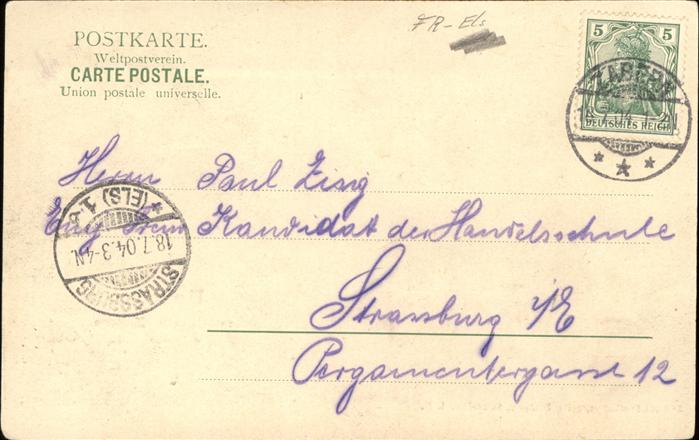 FR-Els
POSTKARTE.
Weltpostverein.
CARTE POSTALE.
Union postale universelle.
5 5
DEUTSCHES REICH
ZABERN
18.7.04. 1-2N
Herrn Paul Zisg
Kandidat der Handelsschule
STRASSBURG
(ELS) 1.
18.7.04.3-4N.
Strassburg i/E
Pergamentergasse 12